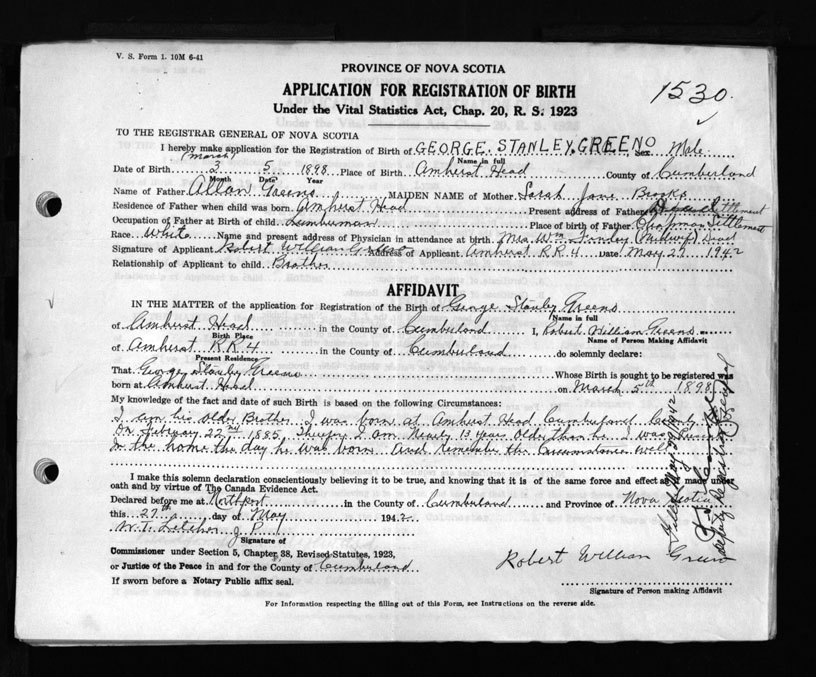 V. S. Form 1. 10M 6-41
PROVINCE OF NOVA SCOTIA
APPLICATION FOR REGISTRATION OF BIRTH
1530.
Under the Vital Statistics Act, Chap. 20, R. S. 1923
TO THE REGISTRAR GENERAL OF NOVA SCOTIA
I hereby make application for the Registration of Birth of GEORGE STANLEY GREENO Sex Male
(March) Name in full
Date of Birth 3 5 1898 Place of Birth Amherst Head County of Cumberland
Month Date Year
Name of Father Allan Greeno MAIDEN NAME of Mother Sarah Jane Brooks
Residence of Father when child was born Amherst Head Present address of Father Settlement
Occupation of Father at Birth of child Lumberman Place of birth of Father Chapman Settlement
Race White Name and present address of Physician in attendance at birth Mrs Wm Finley (Midwife) Dead
Signature of Applicant Robert William Greeno Address of Applicant Amherst R R 4 Date May 27 1942
Relationship of Applicant to child Brother
AFFIDAVIT
IN THE MATTER of the application for Registration of the Birth of George Stanley Greeno
Name in full
of Amherst Head in the County of Cumberland I, Robert William Greeno
Birth Place Name of Person Making Affidavit
of Amherst R R 4 in the County of Cumberland do solemnly declare:
Present Residence
That George Stanley Greeno Whose Birth is sought to be registered was
born at Amherst Head on March 5th 1898
My knowledge of the fact and date of such Birth is based on the following Circumstances:
I am his older Brother I was born at Amherst Head Cumberland County
On February 22nd 1885 Therefor I am Nearly 13 years Older than he. I was
In the home the day he was born and Remember the Circumstances well
I make this solemn declaration conscientiously believing it to be true, and knowing that it is of the same force and effect as made under
oath and by virtue of The Canada Evidence Act.
Declared before me at Northport in the County of Cumberland and Province of Nova Scotia
this 27th day of May 1942
J. P.
Signature of
Commissioner under Section 5, Chapter 38, Revised Statutes, 1923,
or Justice of the Peace in and for the County of Cumberland
Robert William Greeno
If sworn before a Notary Public affix seal.
Signature of Person making Affidavit
For Information respecting the filling out of this Form, see Instructions on the reverse side.
Filed May 29 1942
Deputy Registrar General